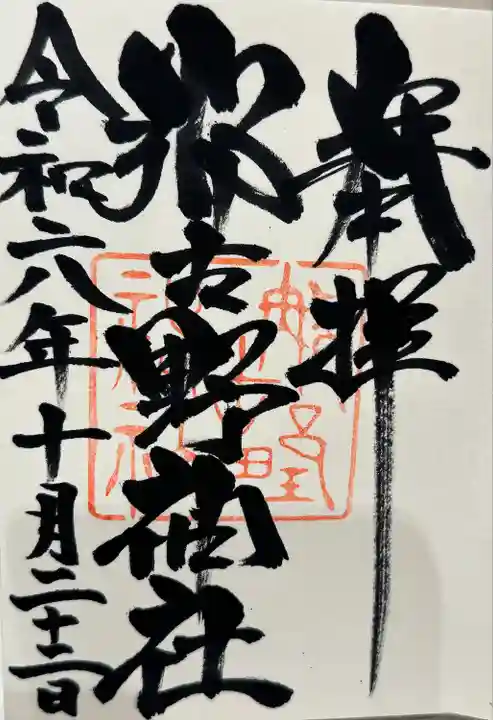 奉拝
古野神社
令和六年十月二十二日